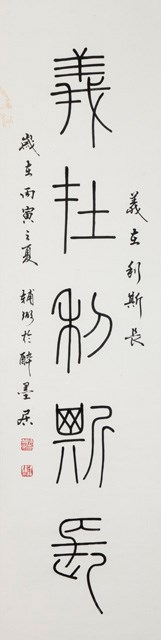 義在利斯長
義在利斯長
歲在丙寅之夏 輔於醉墨居